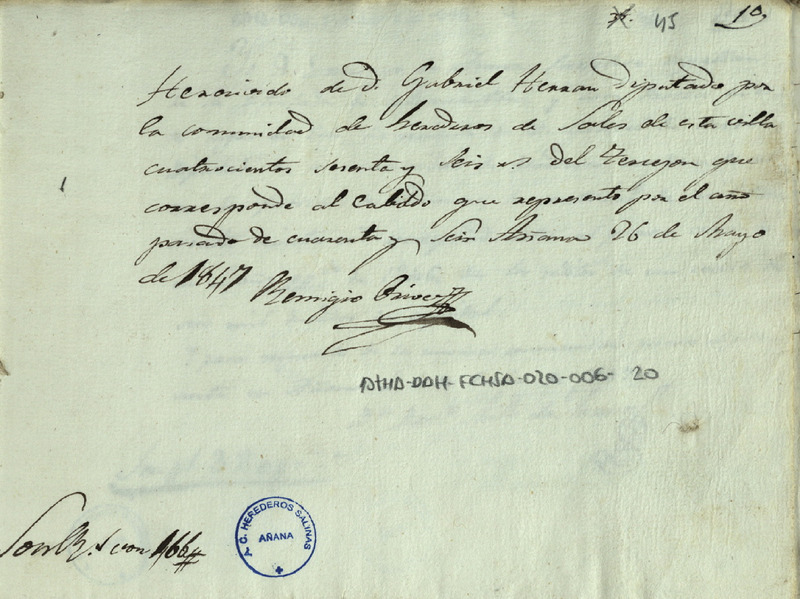 45 10
He recivido de D. Gabriel Herran Diputado por
la comunidad de herederos de Sales de esta villa
cuatrocientos sesenta y seis rs. del Terczon que
corresponde al Cabildo que represento por el año
pasado de cuarenta y seis Añana 26 de Mayo
de 1847
Remigio
ATHA-DAH-FCHSA-020-006-20
Son Rs. von 466
C. HEREDEROS SALINAS
AÑANA